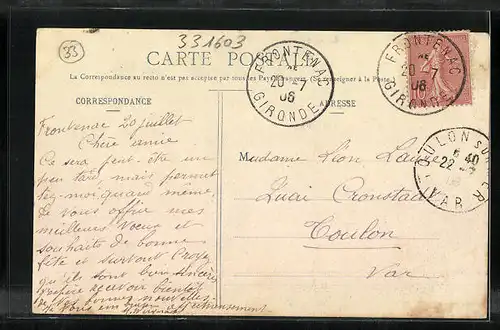 33
331603
CARTE POSTALE
La Correspondance au recto n'est pas acceptée par tous les Pays Etrangers. (Se renseigner à la Poste.)
CORRESPONDANCE
ADRESSE
FRONTENAC
20 -7
06
GIRONDE
FRONTENAC
20
06
GIRONDE
TOULON SUR MER
5 40
22
VAR
Frontenac 20 juillet
Chère amie
Ce sera peut-être un
peu tard mais permet
tez-moi, quand même,
Je vous offrir mes
meilleurs Voeux et
souhaits de bonne
fête et surtout Croyez
qu'ils sont bien sincères
J'espère recevoir bientôt
de vos bonnes nouvelles.
Je vous affectueusement
Madame Léon
Quai Cronstadt
Toulon
Var